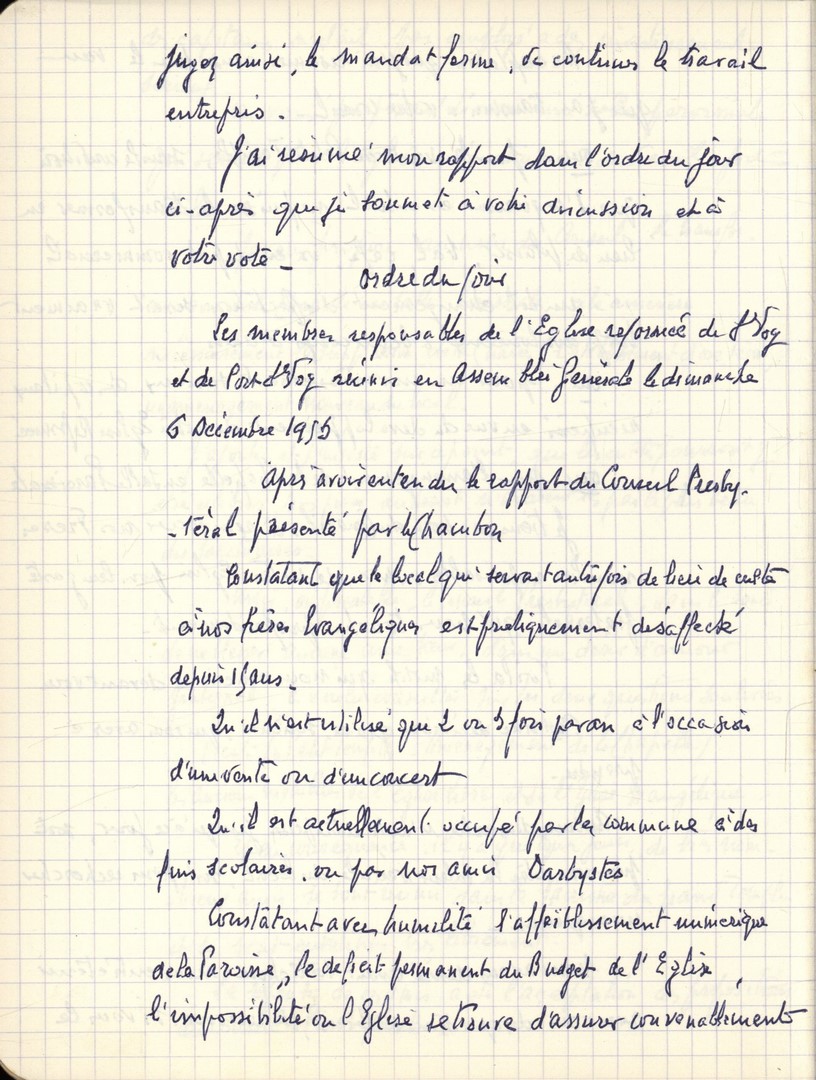 jugez ainsi, le mandat ferme, de continuer le travail
entrepris.
J'ai résumé mon rapport dans l'ordre du jour
ci-après que je soumets à votre discussion et à
votre vote -
ordre du jour
Les membres responsables de l'Eglise reformée de St Voy
et de Port St Voy réunis en Assemblée Générale le dimanche
6 Décembre 1955
Après avoir entendu le rapport du Conseil Presby-
-téral présenté par Mr Chambon
Constatant que le local qui servait autrefois de lieu de culte
à nos frères Evangéliques est pratiquement désaffecté
depuis 15 ans -
Qu'il n'est utilisé que 2 ou 3 fois par an à l'occasion
d'une vente ou d'un concert
Qu'il est actuellement occupé par la commune à des
fins scolaires, ou par nos amis Darbystes
Constatant avec humilité l'affaiblissement numérique
de la Paroisse, le deficit permanent du Budget de l'Eglise,
l'impossibilité où l'Eglise se trouve d'assurer convenablement